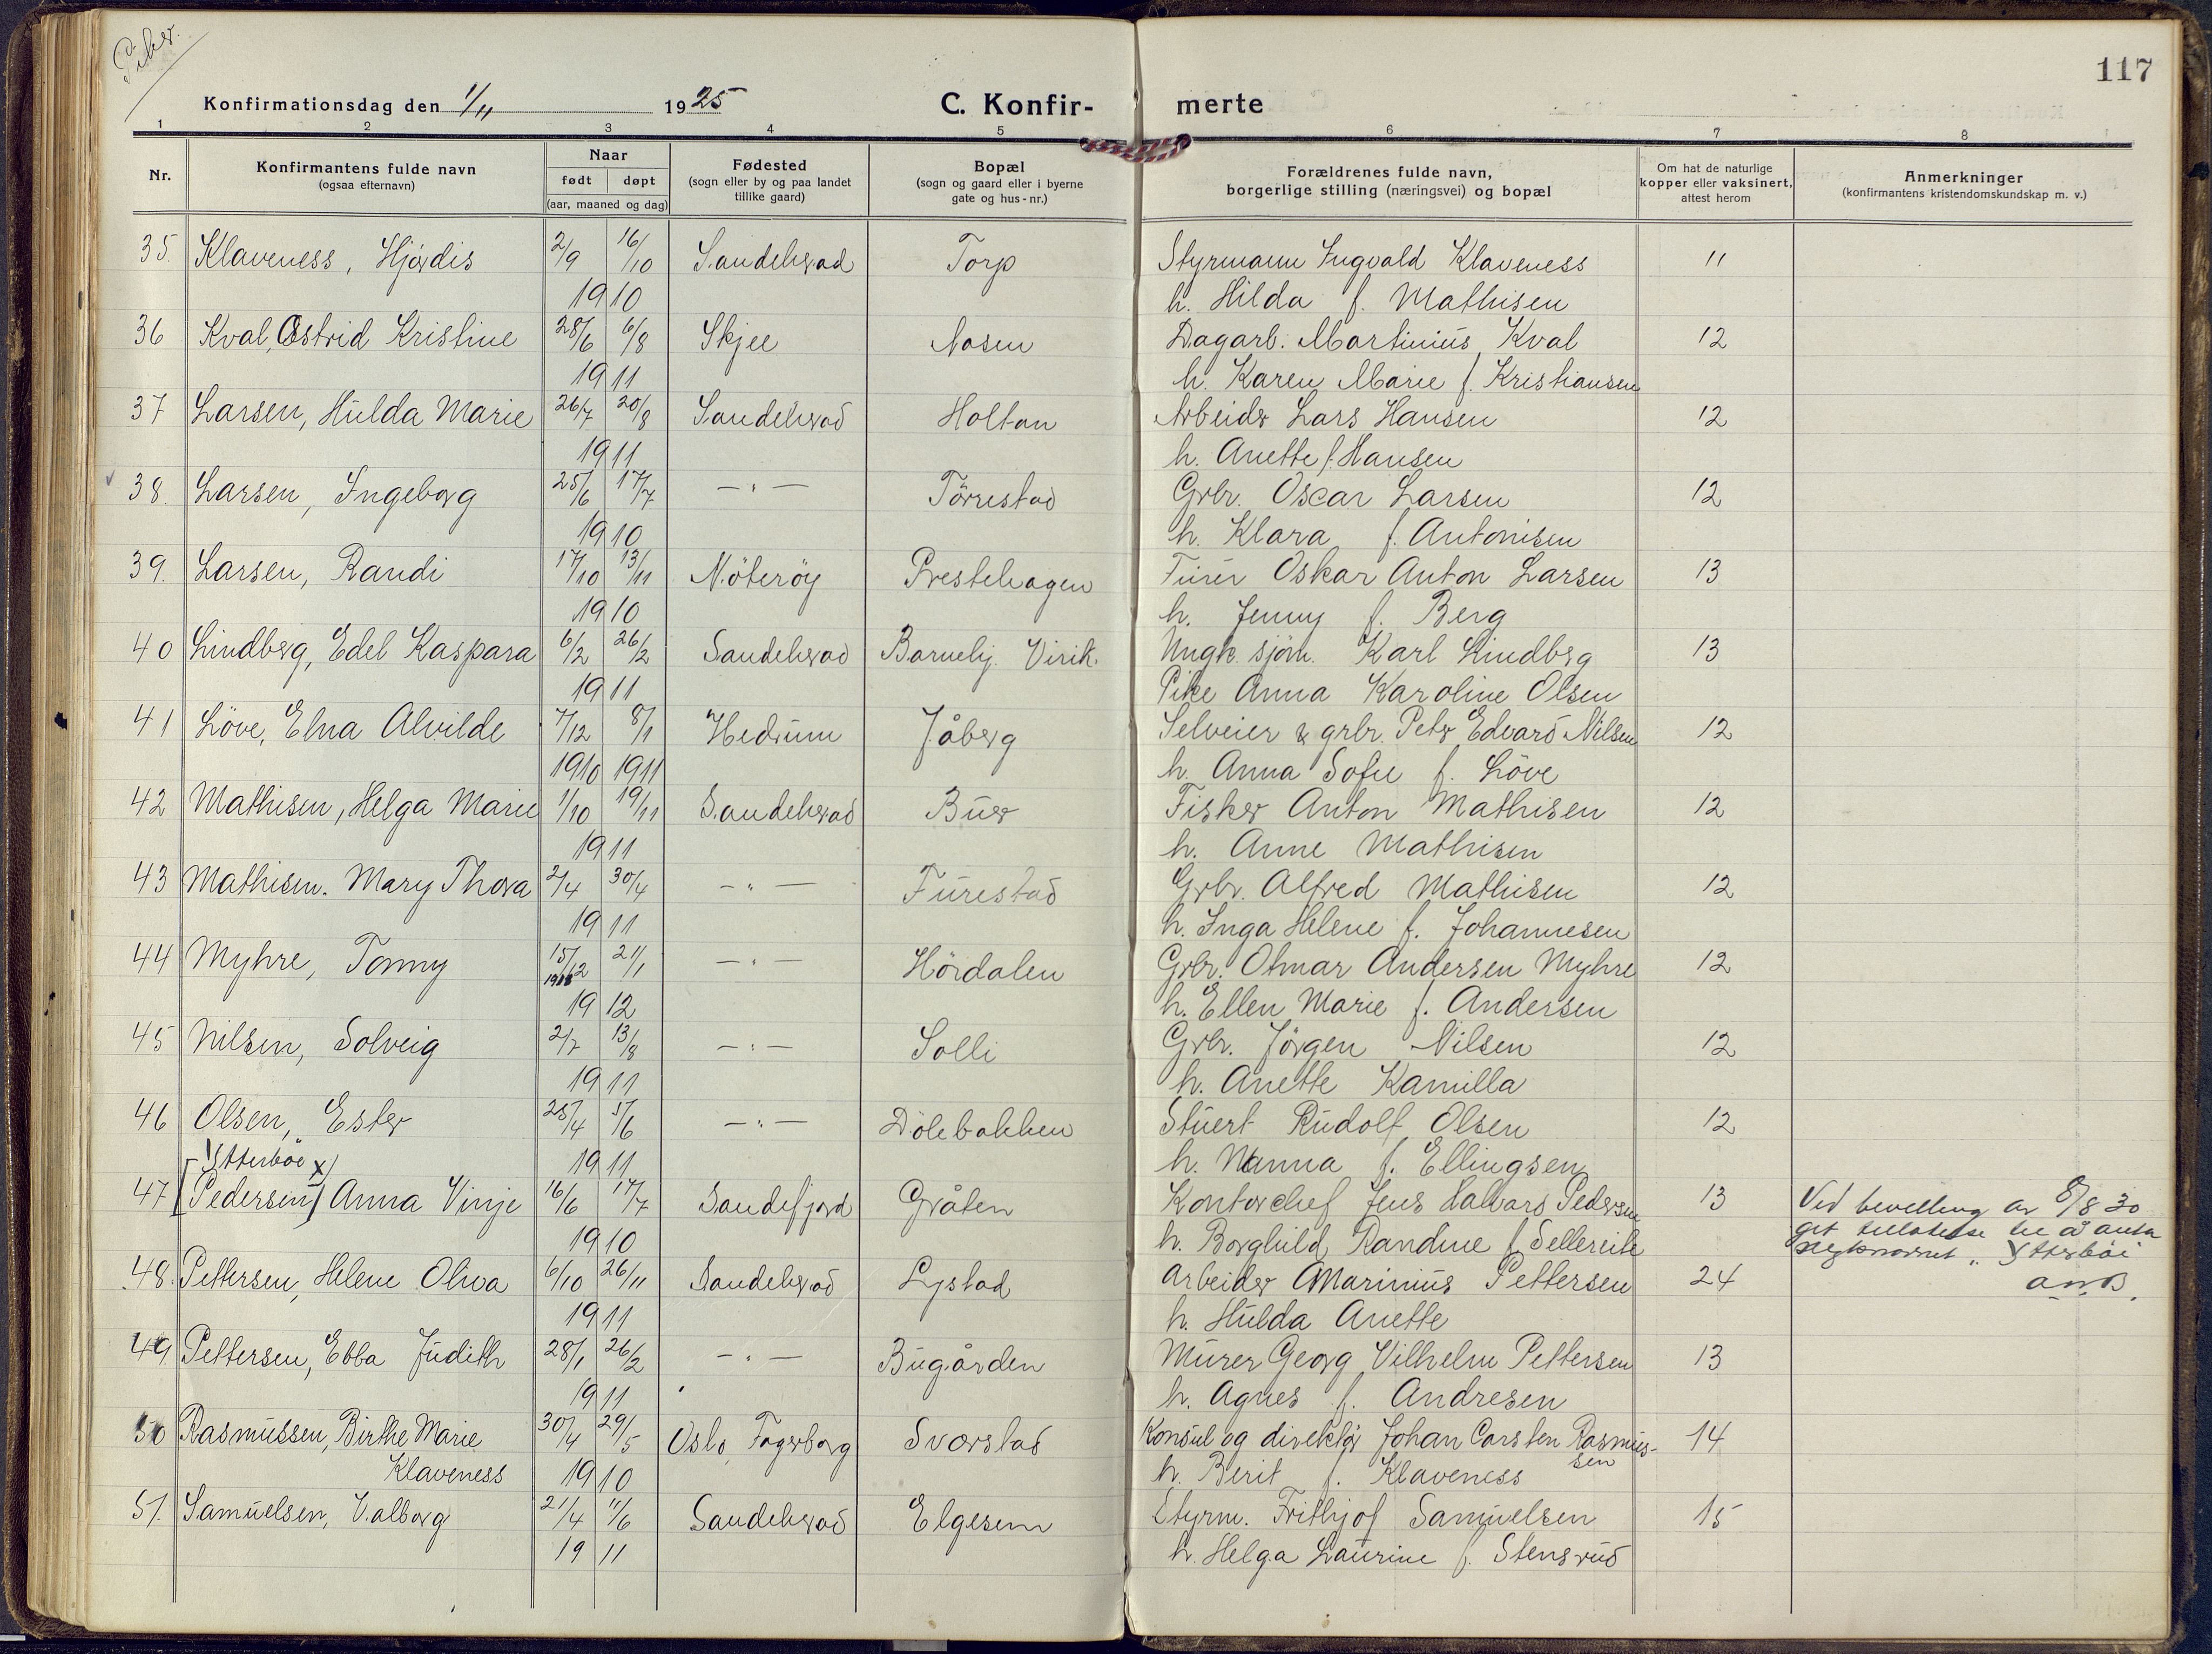 Piker.
117
Konfirmationsdag den 1/11 1925 C. Konfir- merte
1 2 3 4 5 6 7 8
Nr.
Konfirmantens fulde navn
(ogsaa efternavn)
Naar
født døpt
(aar, maaned og dag)
Fødested
(sogn eller by og paa landet
tillike gaard)
Bopæl
(sogn og gaard eller i byerne
gate og hus-nr.)
Forældrenes fulde navn,
borgerlige stilling (næringsvei) og bopæl
Om hat de naturlige
kopper eller vaksinert,
attest herom
Anmerkninger
(konfirmantens kristendomskundskap m. v.)
35. Klaveness, Hjørdis 2/9 16/10 Sandeherad Torp Styrmann Ingvald Klaveness 11
1910 h. Hilda f. Mathisen
36 Kval, Astrid Kristine 28/6 6/8 Skjee Nosen Dagarb. Martinius Kval 12
1911 h. Karen Marie f. Kristiansen
37 Larsen, Hulda Marie 26/7 20/8 Sandeherad Holtan Arbeider Lars Hansen 12
1911 h. Anette f. Hansen
38. Larsen, Ingeborg 25/6 17/7 —„— Törrestad Grbr. Oscar Larsen 12
1910 h. Klara f. Antonisen
39. Larsen, Randi 17/10 13/11 Nöteröy Prestehagen Furer Oskar Anton Larsen 13
1910 h. Jenny f. Berg
40 Lindberg, Edel Kaspara 6/2 26/2 Sandeherad Barnehj. Virik. Ungk. sjöm. Karl Lindberg 13
1911 Pike Anna Karoline Olsen
41 Löve, Elna Alvilde 7/12 8/1 Hedrum Jåberg Selveier & grbr. Peter Edvard Nilsen 12
1910 1911 h. Anna Sofie f. Löve
42 Mathisen, Helga Marie 1/10 19/11 Sandeherad Buer Fisker Anton Mathisen 12
1911 h. Anne Mathisen
43 Mathisen. Mary Thora 2/4 30/4 —„— Furestad Grbr. Alfred Mathisen 12
1911 h. Inga Helene f. Johannesen
44 Myhre, Tonny 15/12 21/1 —„— Hördalen Grbr. Otmar Andersen Myhre 12
1912 h. Ellen Marie f. Andersen
45 Nilsen, Solveig 2/7 13/8 —„— Solli Grbr. Jörgen Nilsen 12
1911 h. Anette Kamilla
46 Olsen, Ester 25/4 5/6 —„— Dölebakken Stuert Rudolf Olsen 12
Ytterböe x) 1911 h. Nanna f. Ellingsen
47 [Pedersen] Anna Vinje 16/6 17/7 Sandefjord Gråten Kontorchef Jens Halvard Pedersen 13 Ved bevilling av 8/8 30
1910 h. Borghild Randine f. Sellereite git tillatelse til å anta
slegtsnavnet „Ytterböe
48. Pettersen, Helene Oliva 6/10 26/11 Sandeherad Lystad Arbeider Marinius Pettersen 24
1911 h. Hulda Anette
49. Pettersen, Ebba Judith 28/1 26/2 —„— Bugården Murer Georg Vilhelm Pettersen 13
1911 h. Agnes f. Andresen
50 Rasmussen, Birthe Marie 30/4 29/5 Oslo, Fagerborg Sverstad Konsul og direktör Johan Carsten Rasmus- 14
sen
Klaveness 1910 h. Berit f. Klaveness
51. Samuelsen, Valborg 21/4 11/6 Sandeherad Elgesem Styrm. Frithjof Samuelsen 15
1911 h. Helga Laurine f. Stensrud